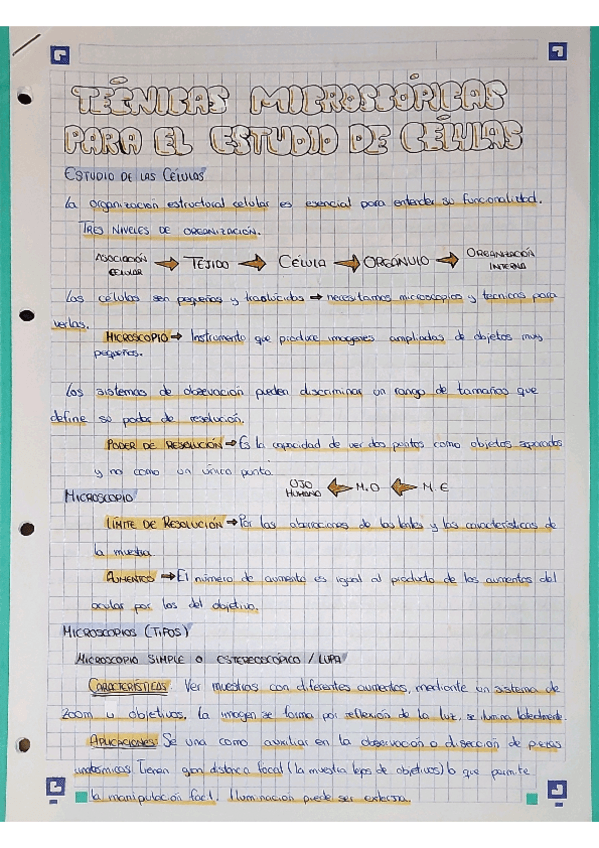 TÉCNICAS MICROSCÓPICAS
PARA EL ESTUDIO DE CÉLULAS
ESTUDIO DE LAS CÉLULAS
La organización estructural celular es esencial para entender su funcionalidad.
TRES NIVELES DE ORGANIZACIÓN.
ASOCIACIÓN CELULAR → TEJIDO → CÉLULA → ORGÁNULO → ORGANIZACIÓN INTERNA
Las células son pequeñas y traslúcidas → necesitamos microscopios y técnicas para
verlas.
MICROSCOPIO → Instrumento que produce imágenes ampliadas de objetos muy
pequeños.
Los sistemas de observación pueden discriminar un rango de tamaños que
define su poder de resolución.
PODER DE RESOLUCIÓN → Es la capacidad de ver dos puntos como objetos separados
y no como un único punto.
OJO HUMANO ← M.O ← M.E
MICROSCOPIO
LÍMITE DE RESOLUCIÓN → Por las aberraciones de las lentes y las características de
la muestra
AUMENTO → El número de aumento es igual al producto de los aumentos del
ocular por los del objetivo.
MICROSCOPIOS (TIPOS)
MICROSCOPIO SIMPLE O ESTEREOCÓPICO / LUPA
CARACTERÍSTICAS. Ver muestras con diferentes aumentos, mediante un sistema de
zoom u objetivos. La imagen se forma por reflexión de la luz, se ilumina lateralmente.
APLICACIONES: Se usa como auxiliar en la observación o disección de piezas
anatómicas. Tienen gran distancia focal (la muestra lejos de objetivos) lo que permite
la manipulación fácil. Iluminación puede ser externa.